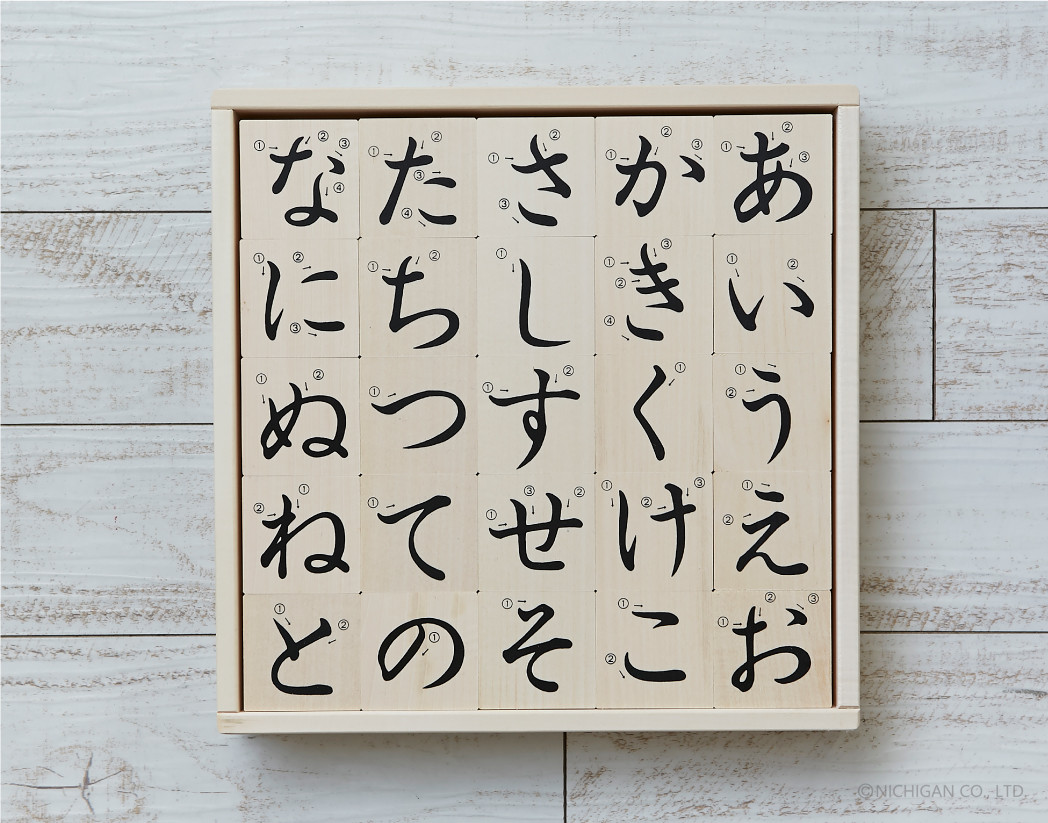 あいうえお
かきくけこ
さしすせそ
たちつての
なにぬねと
©NICHIGAN CO., LTD.